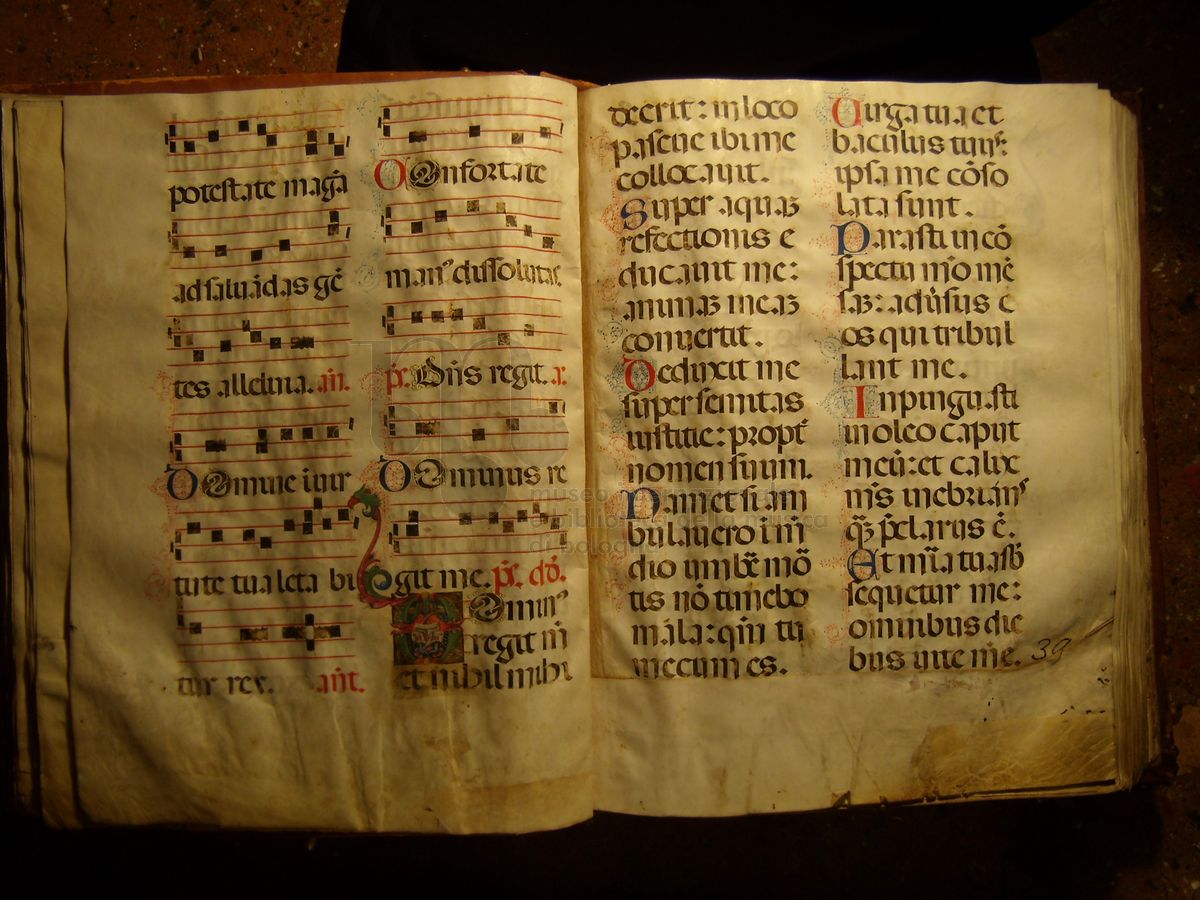 potestate mag̃a
ad saluãdas gẽ
tes alleluia. añ.
Domine in uir
tute tua leta bi
tur rex. añt.
Confortate
man⁹ dissolutas
p̃s. Dñs regit. a.
Dominus re
git me. p̃s. dd̃.
Domin⁹
regit m̃
et nihil mihi
deerit: in loco
pascue ibi me
collocauit.
Super aquaʒ
refectionis e
ducauit me:
animaʒ meaʒ
conuertit.
Deduxit me
super semitas
iustitie: propt̃
nomen suum.
Nam et si am
bulauero i m̃
dio umbre mõ
tis nõ timebo
mala: qm̃ tu
mecum es.
Uirga tua et
baculus tuus:
ipsa me cõso
lata sunt.
Parasti in cõ
spectu m̃o mẽ
saʒ: aduersus e
os qui tribul
lant me.
Inpinguasti
in oleo caput
meũ: et calix
m̃s inebrians
qʒ p̃clarus ẽ.
Et mĩa tua sb̃
sequetur me:
omnibus die
bus uite mẽ.
39
museo
e biblioteca della musica
di bologna